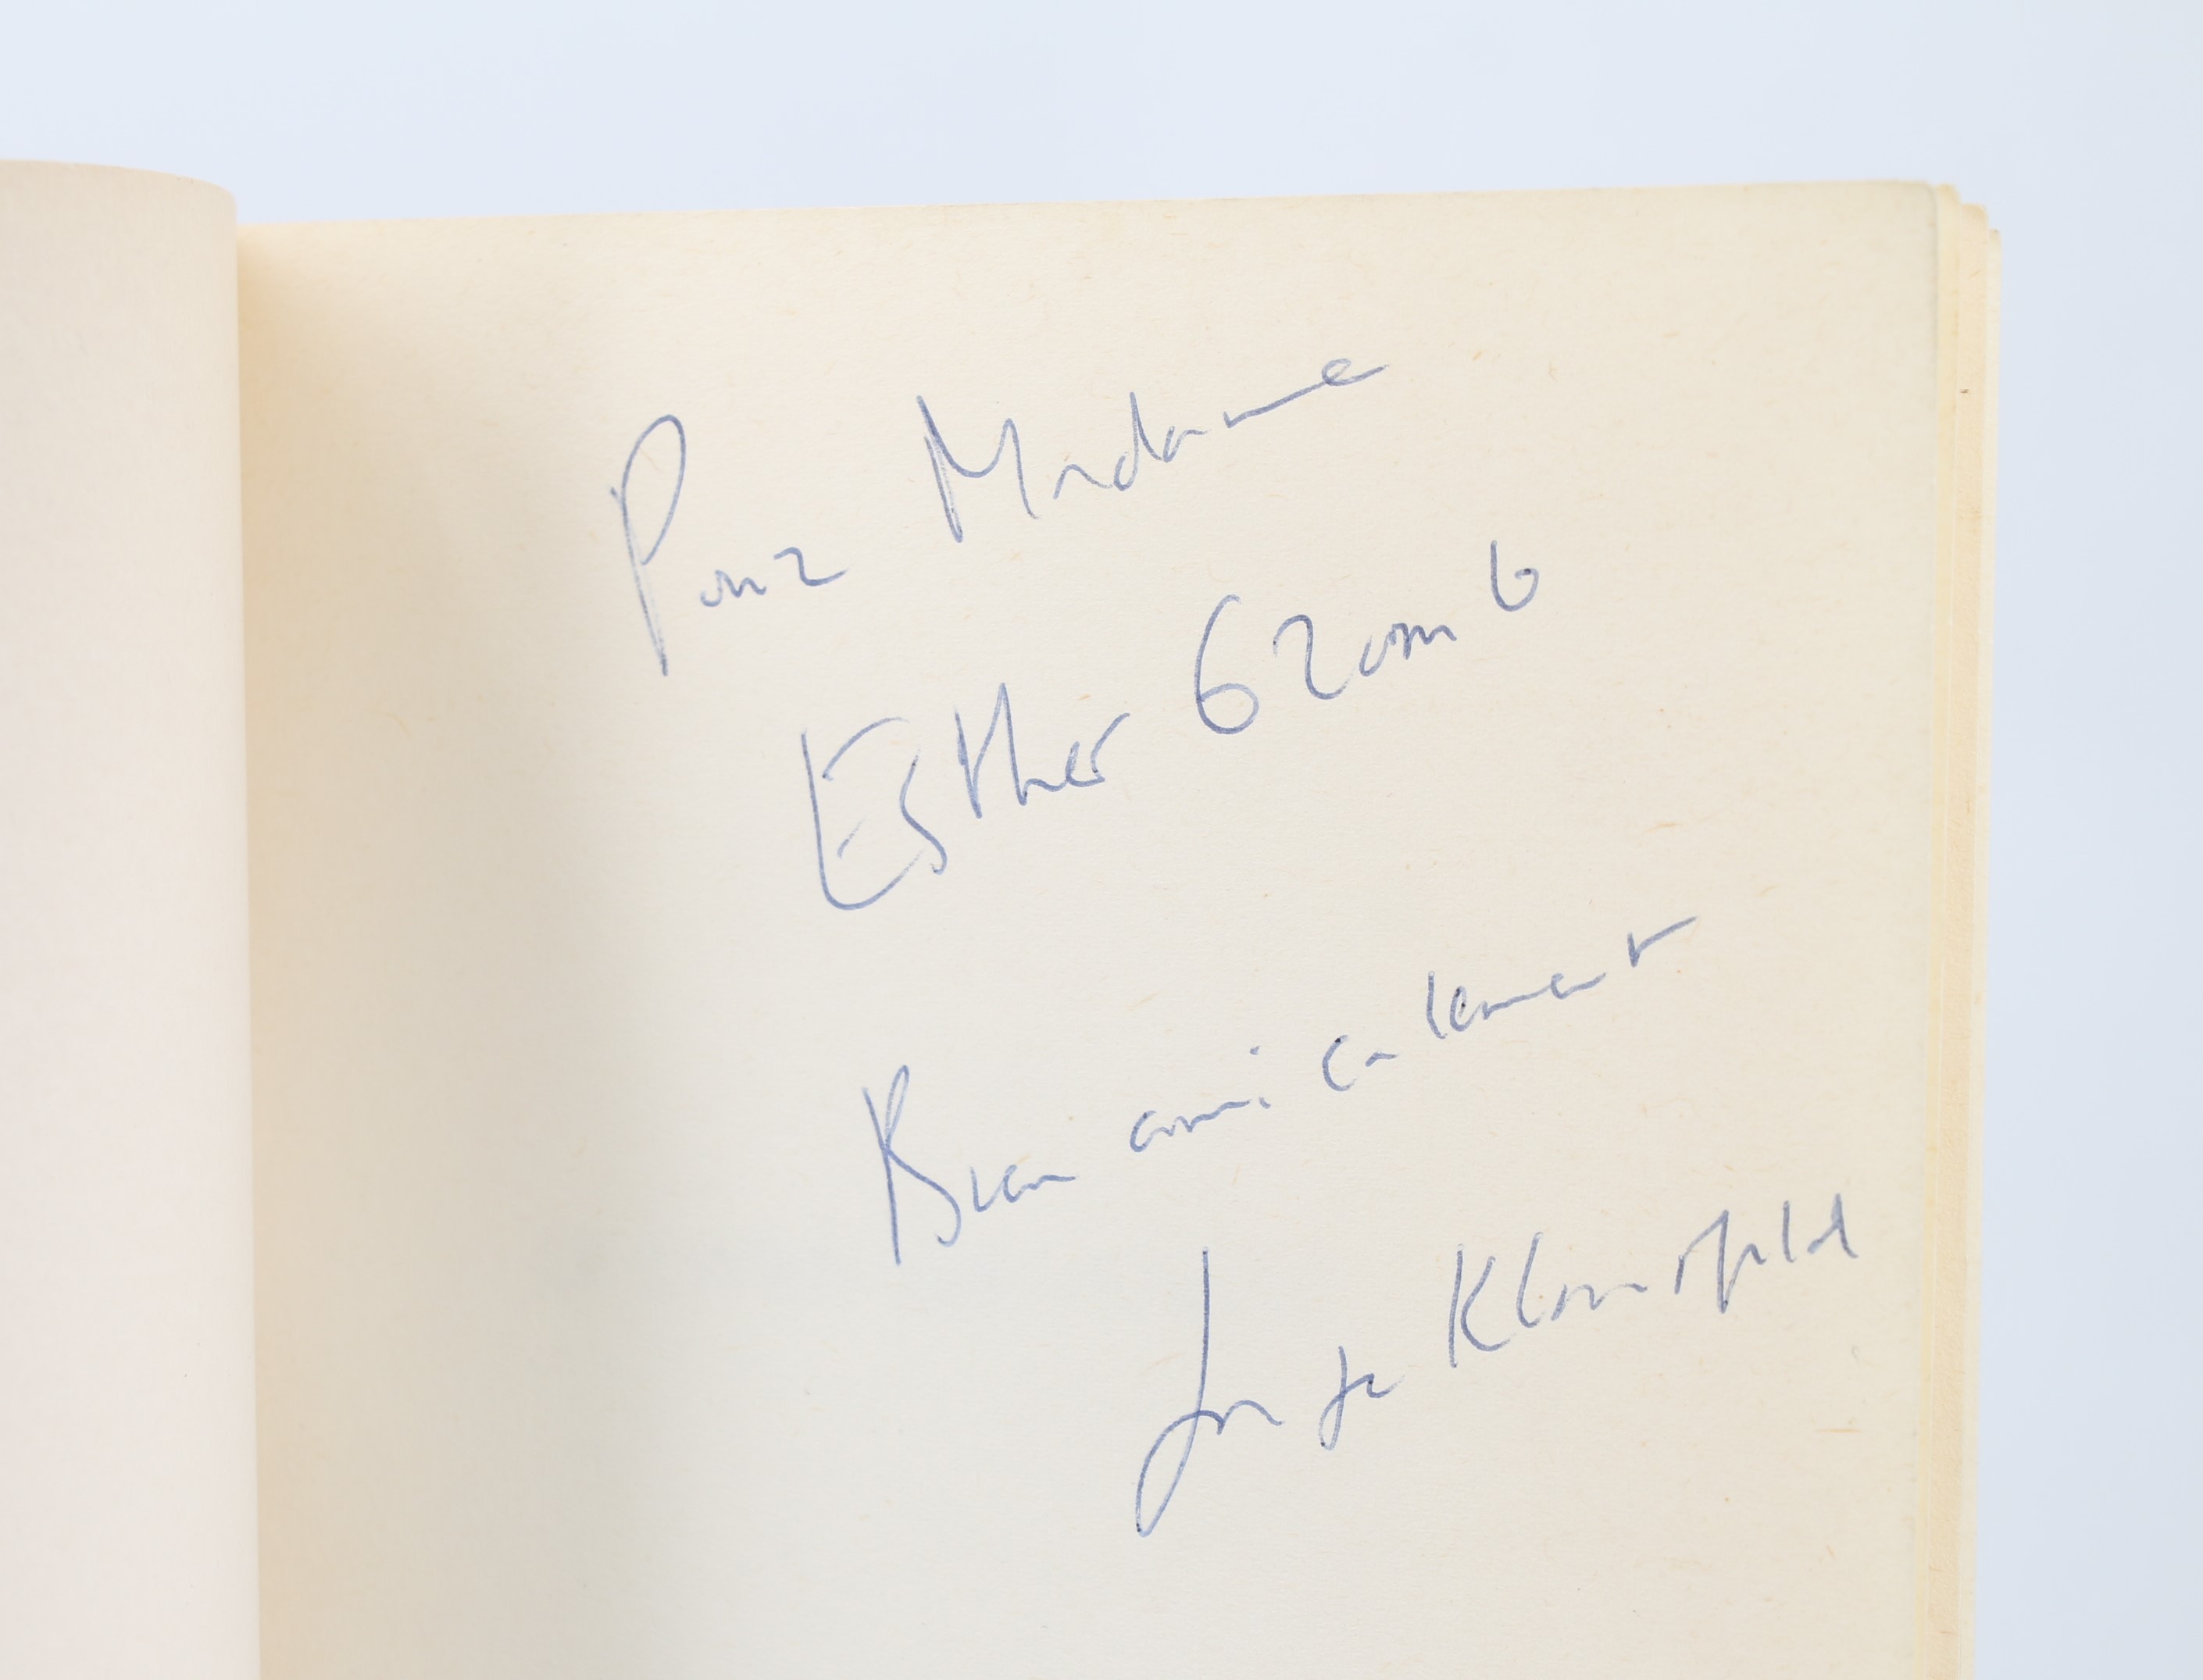 Pour Madame
Esther Gromb
Bien amicalement
Serge Klarsfeld